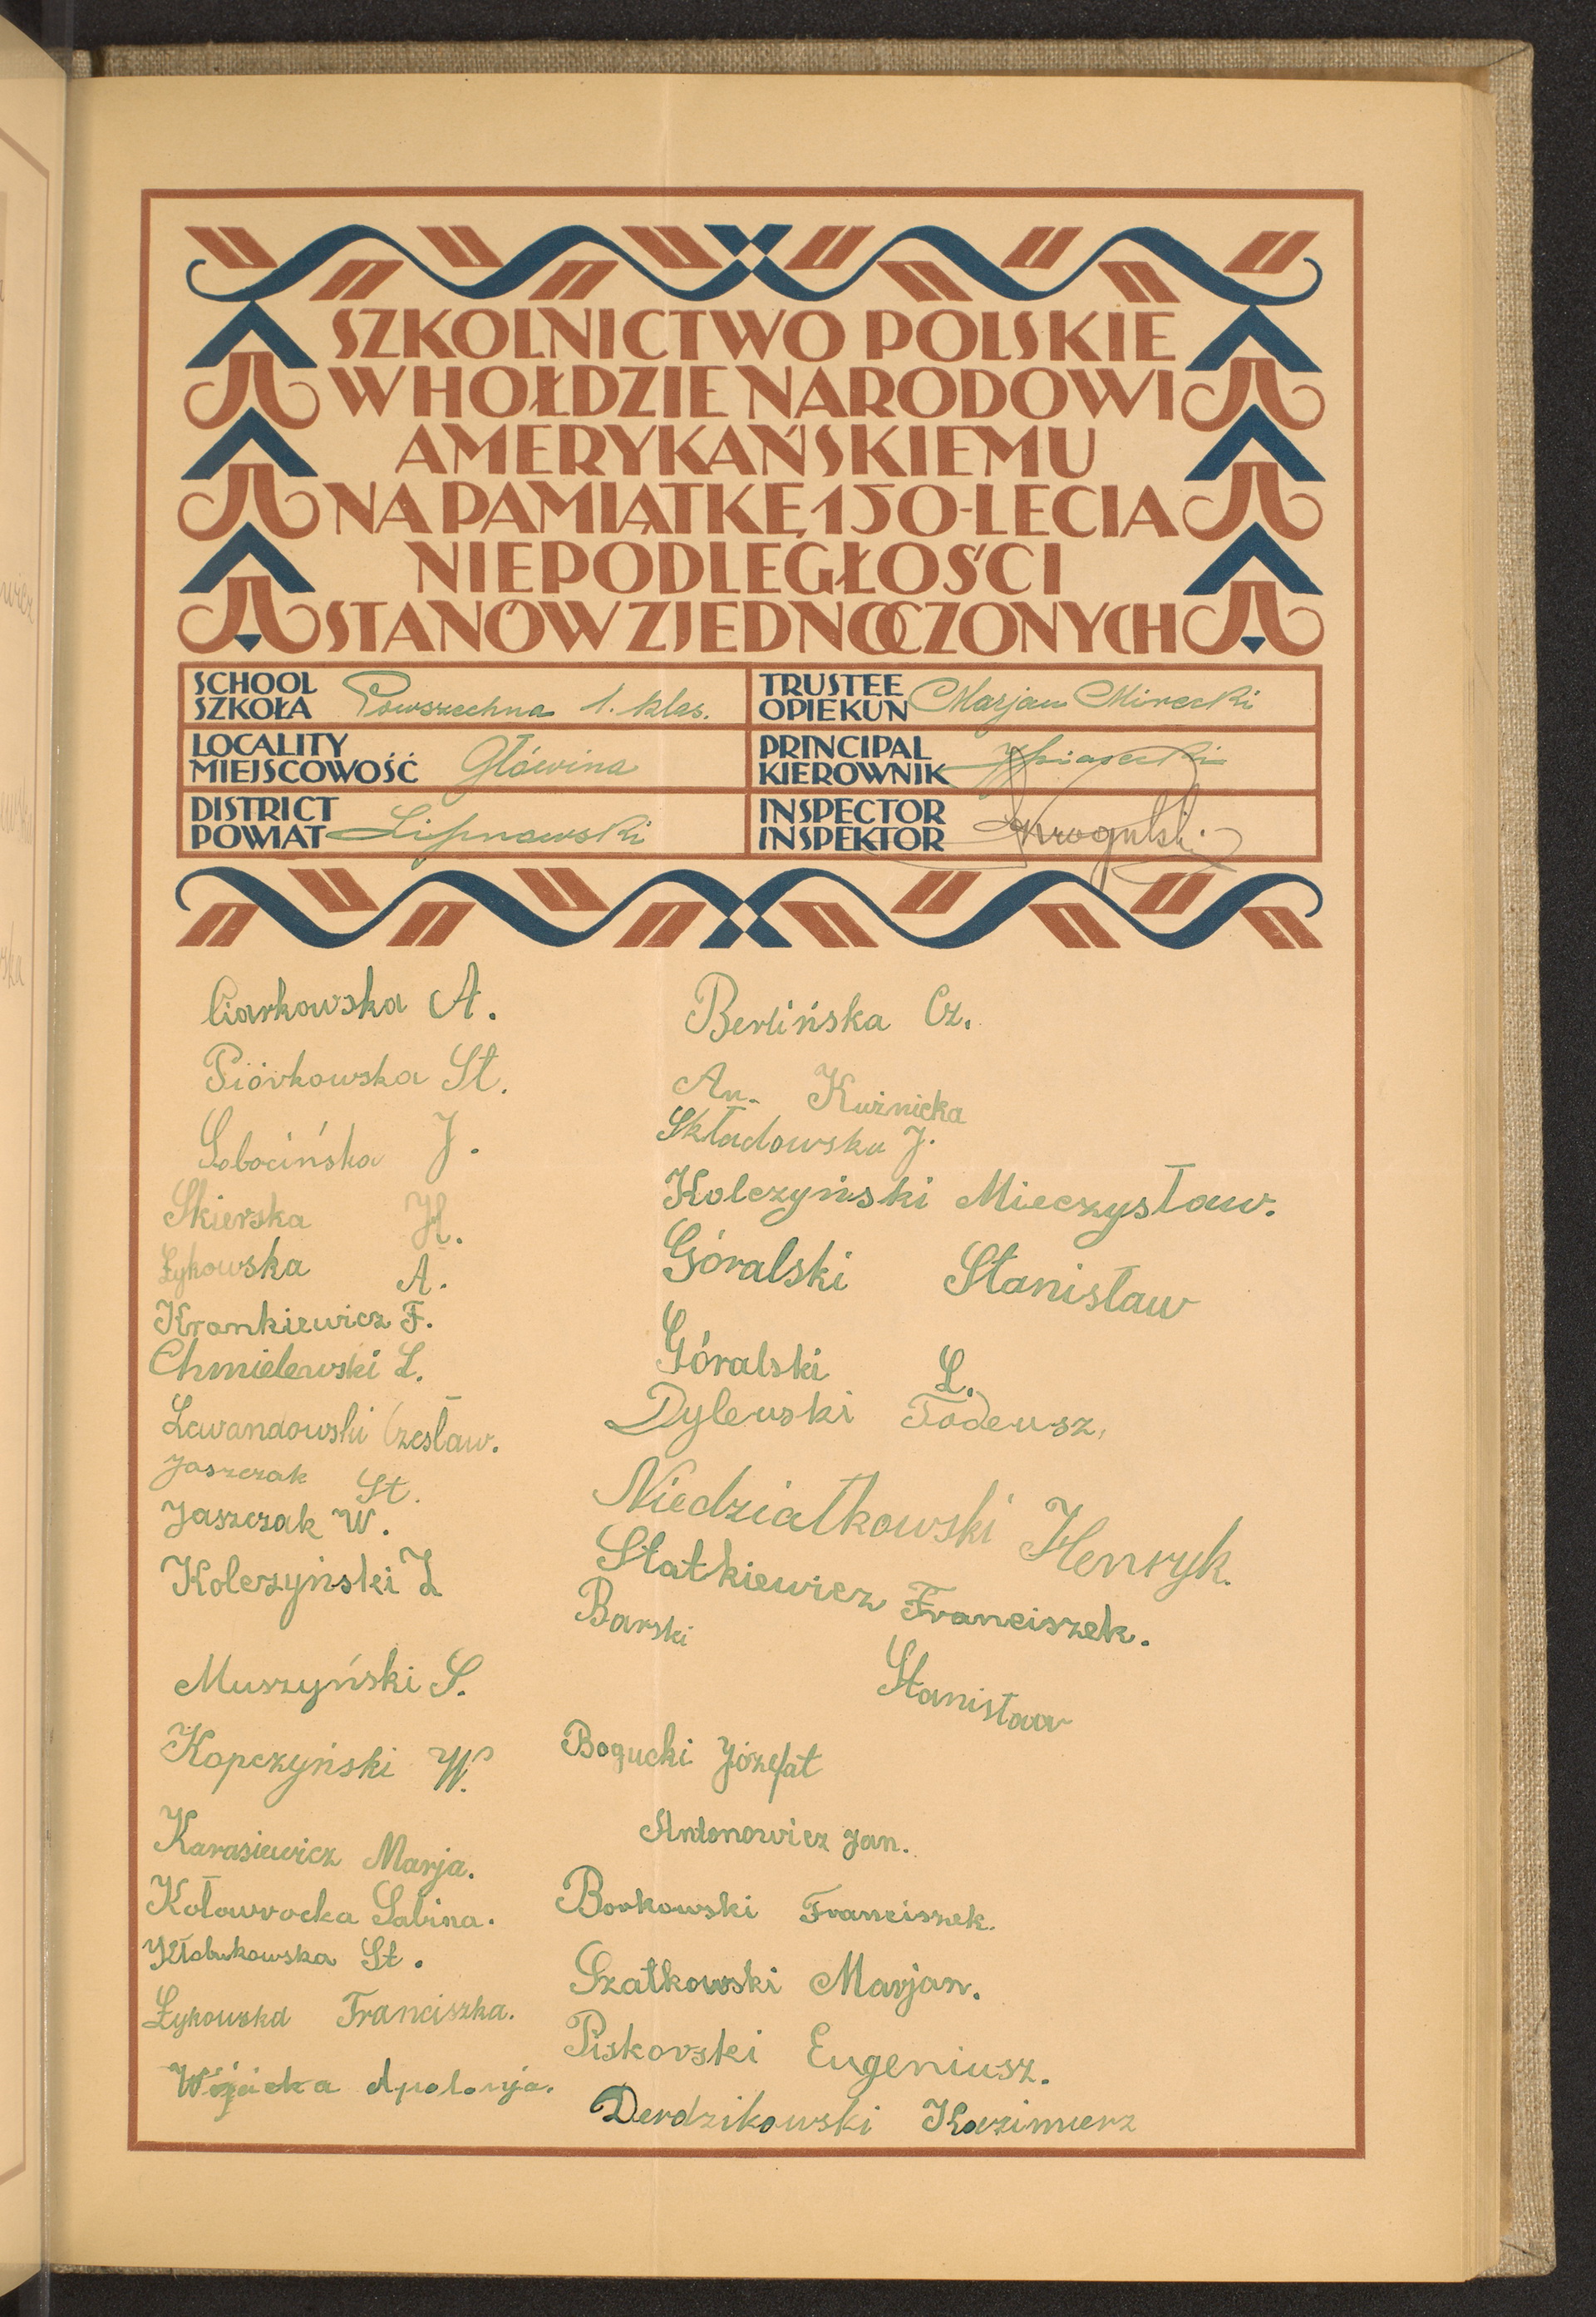 SZKOLNICTWO POLSKIE
W HOŁDZIE NARODOWI
AMERYKAŃSKIEMU
NA PAMIĄTKĘ 150-LECIA
NIEPODLEGŁOŚCI
STANÓW ZJEDNOCZONYCH
SCHOOL
SZKOŁA Powszechna 1. klas.
TRUSTEE
OPIEKUN Marjan Mirecki
LOCALITY
MIEJSCOWOŚĆ Główina
PRINCIPAL
KIEROWNIK JPiasecki
DISTRICT
POWIAT Lipnowski
INSPECTOR
INSPEKTOR Krogulski
Ciarkowska A.
Piórkowska St.
Sobocińska J.
Skierska H.
Łykowska A.
Krankiewicz F.
Chmielewski L.
Lewandowski Czesław.
Jaszczak St.
Jaszczak W.
Kolczyński L
Muszyński S.
Kopczyński W.
Karasiewicz Marja.
Kołowrocka Sabina.
Kłobukowska St.
Łykowska Franciszka.
Wójcicka Apolonja.
Berlińska Cz.
An. Kuźnicka
Składowska J.
Kolczyński Mieczysław.
Góralski Stanisław
Góralski L.
Dylewski Tadeusz,
Niedziałkowski Henryk.
Statkiewicz Franciszek.
Barski
Stanisław
Bogucki Józefat
Antonowicz Jan.
Borkowski Franciszek.
Szatkowski Marjan.
Piskorski Eugeniusz.
Derdzikowski Kazimierz